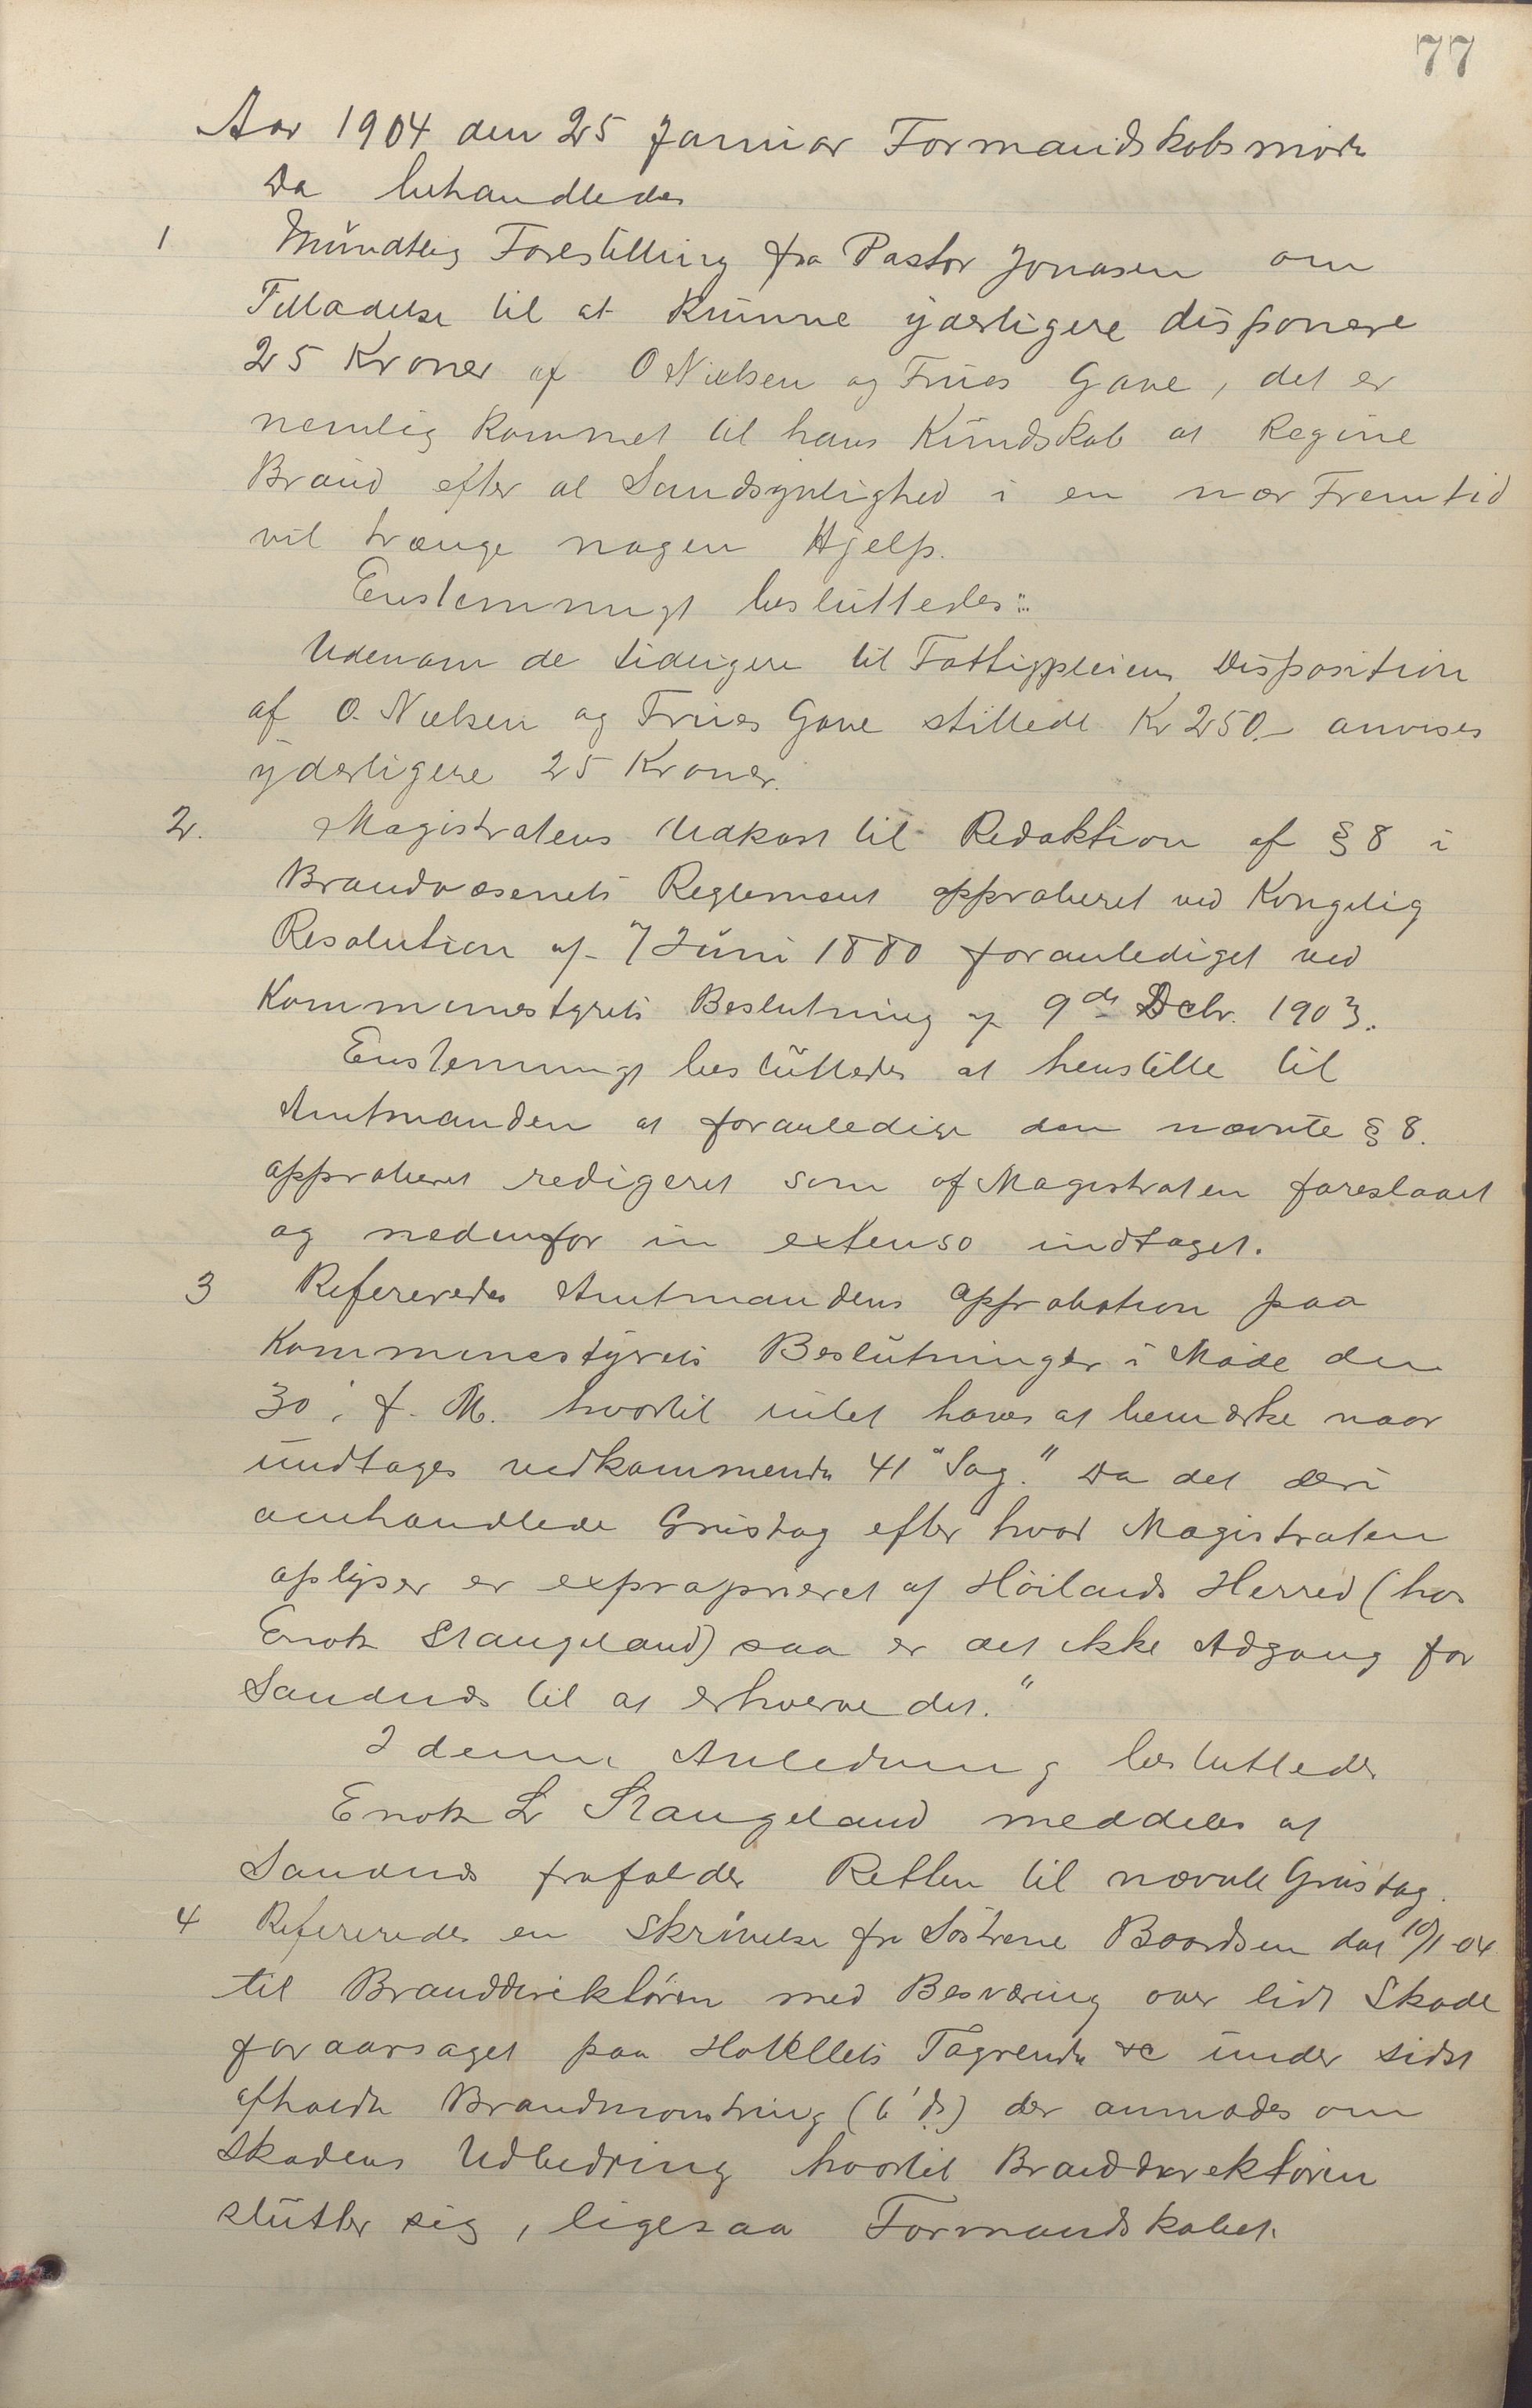 77
Aar 1904 den 25 Januar Formandskabsmøde
Da behandledes
1 Mundtlig Forestilling fra Pastor Jonasen om
Tilladelse til at kunne yderligere disponere
25 Kroner af O Nielsen og Frues Gave, det er
nemlig kommet til hans Kundskab at Regine
Braud efter al Sandsynlighed i en nær Fremtid
vil trænge nogen Hjelp.
Enstemmigt besluttedes:
Udenom de tidligere til Fattigpleiens Disposition
af O. Nielsen og Frues Gave stillede Kr 250.- anvises
yderligere 25 Kroner.
2. Magistratens Udkast til Redaktion af § 8 i
Brandvæsenets Reglement approberet ved Kongelig
Resolution af 7 Juni 1880 foranlediget ved
Kommunestyrets Beslutning af 9de Dcbr. 1903.
Enstemmigt besluttedes at henstille til
Amtmanden at foranledige den nævnte § 8.
approberet redigeret som af Magistraten foreslaaet
og nedenfor in extenso indtaget.
3 Refereredes Amtmandens approbation paa
Kommunestyrets Beslutninger i Møde den
30. f. M. hvortil intet haves at bemærke naar
undtages vedkommende 41 "Sag." Da det deri
omhandlede Grustag efter hvad Magistraten
oplyser er exproprieret af Høilands Herred (hos
Enok Stangeland) saa er det ikke Adgang for
Sandnæs til at erhverve det."
I denne Anledning besluttedes
Enok L Stangeland meddeles at
Sandnæs frafalder Retten til nævnte Grustag.
4 Refereredes en Skrivelse fra Søstrene Baardsen dat 10/1-04
til Branddirektøren med Besværing over lidt Skade
foraarsaget paa Hotellets Tagrende &c under sidst
afholdte Brandmønstring (6' ds) der anmodes om
Skadens Udbedring hvortil Branddirektøren
slutter sig, ligesaa Formandskabet.